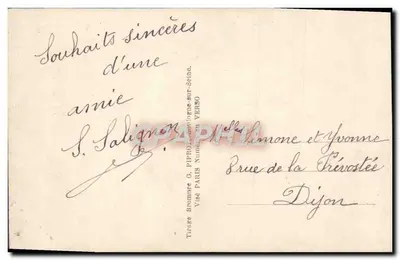 Souhaits sincères
d'une
amie
S. Salignon
Tirage Bromure G. PIPROT
sur-Seine.
Visé PARIS
au VERSO
elles Simone et Yvonne
8 rue de la Prévostée
Dijon